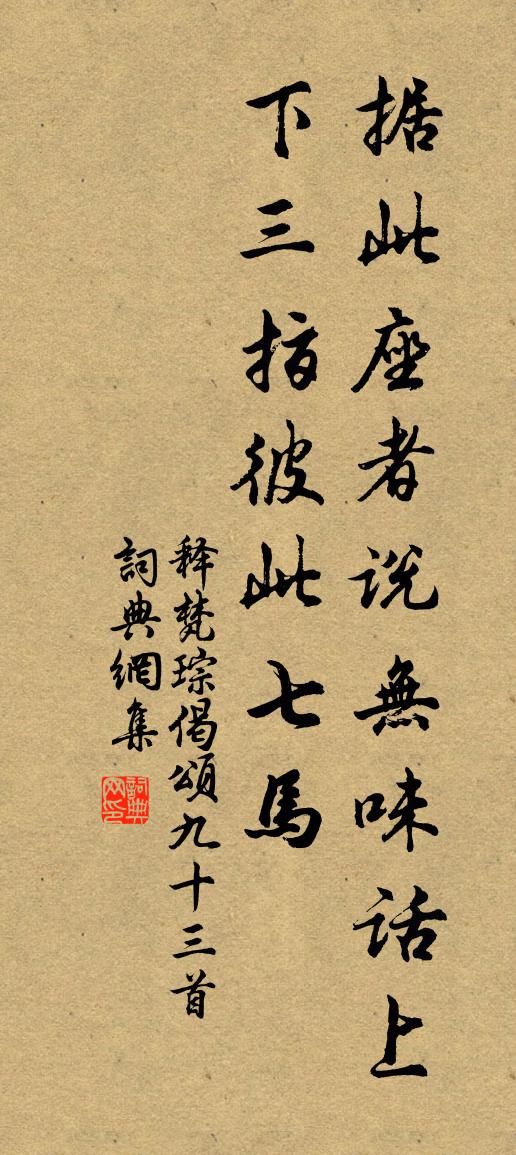 据此座者说無味话上
下三指彼此七馬
释梵琮偈頌九十三首
詞典網集
詞典网印